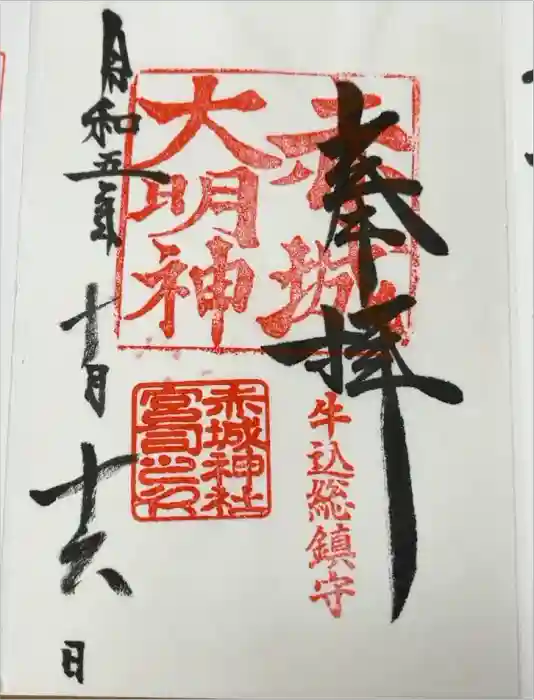 奉拝
赤城
大明神
牛込総鎮守
赤城神社
宮司之印
令和五年十月十六日